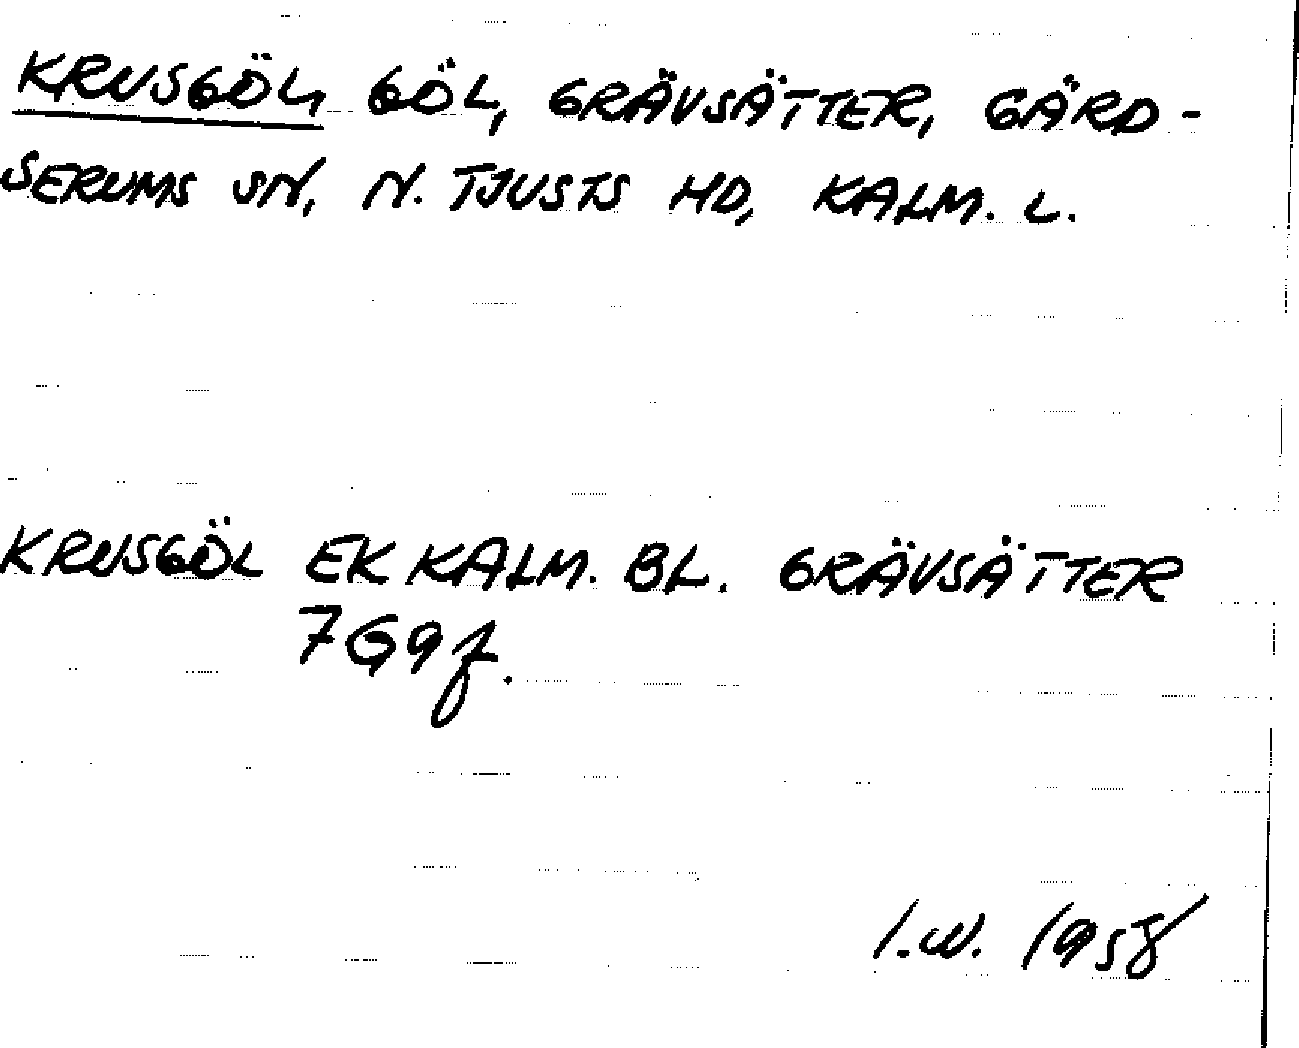 KRUSGÖL, GÖL, GRÄVSÄTTER, GÄRD-
SERUMS SN, N. TJUSTS HD, KALM. L.
KRUSGÖL EK KALM. BL. GRÄVSÄTTER
7G9f.
I.W. 1958